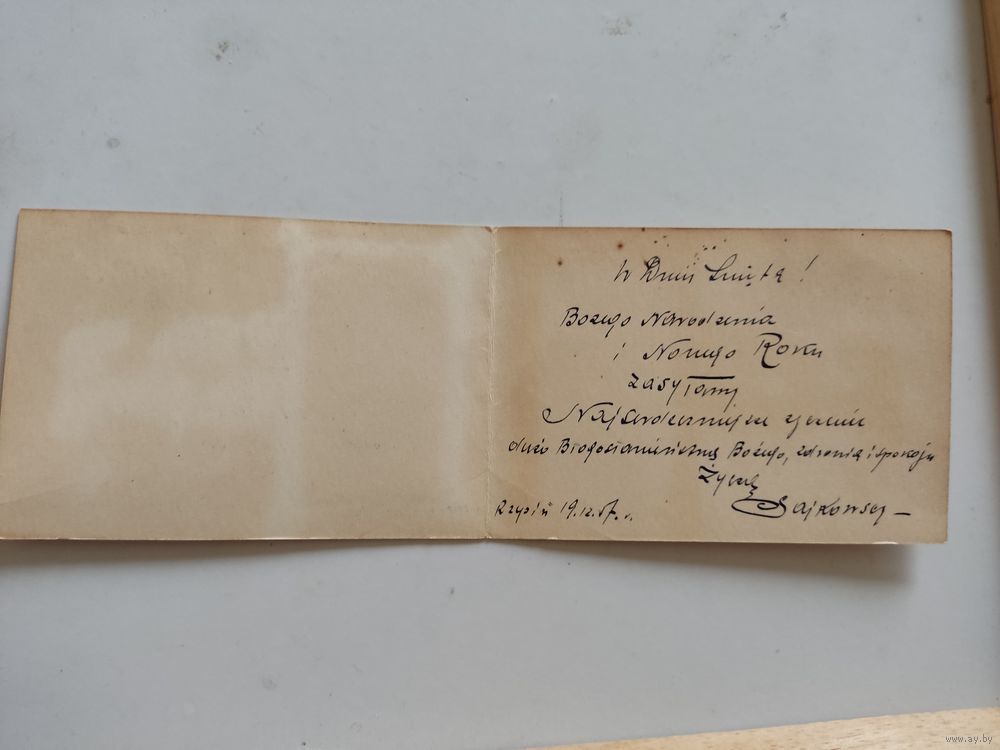 W Dniu Święta!
Bożego Narodzenia
i Nowego Roku
zasyłamy
Najserdeczniejsze życzenie
dużo Błogosławieństwa Bożego, zdrowia i spokoju
Życzą
Sajkowscy –
19.12.57 r.
www.ay.by